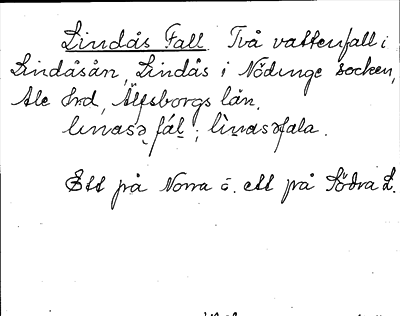 Lindås Fall. Två vattenfall i
Lindåsån, Lindås i Nödinge socken,
Ale hrd, Älfsborgs län.
linasə fàl ; lìnasəfala.
Ett på Norra o. ett på Södra L.